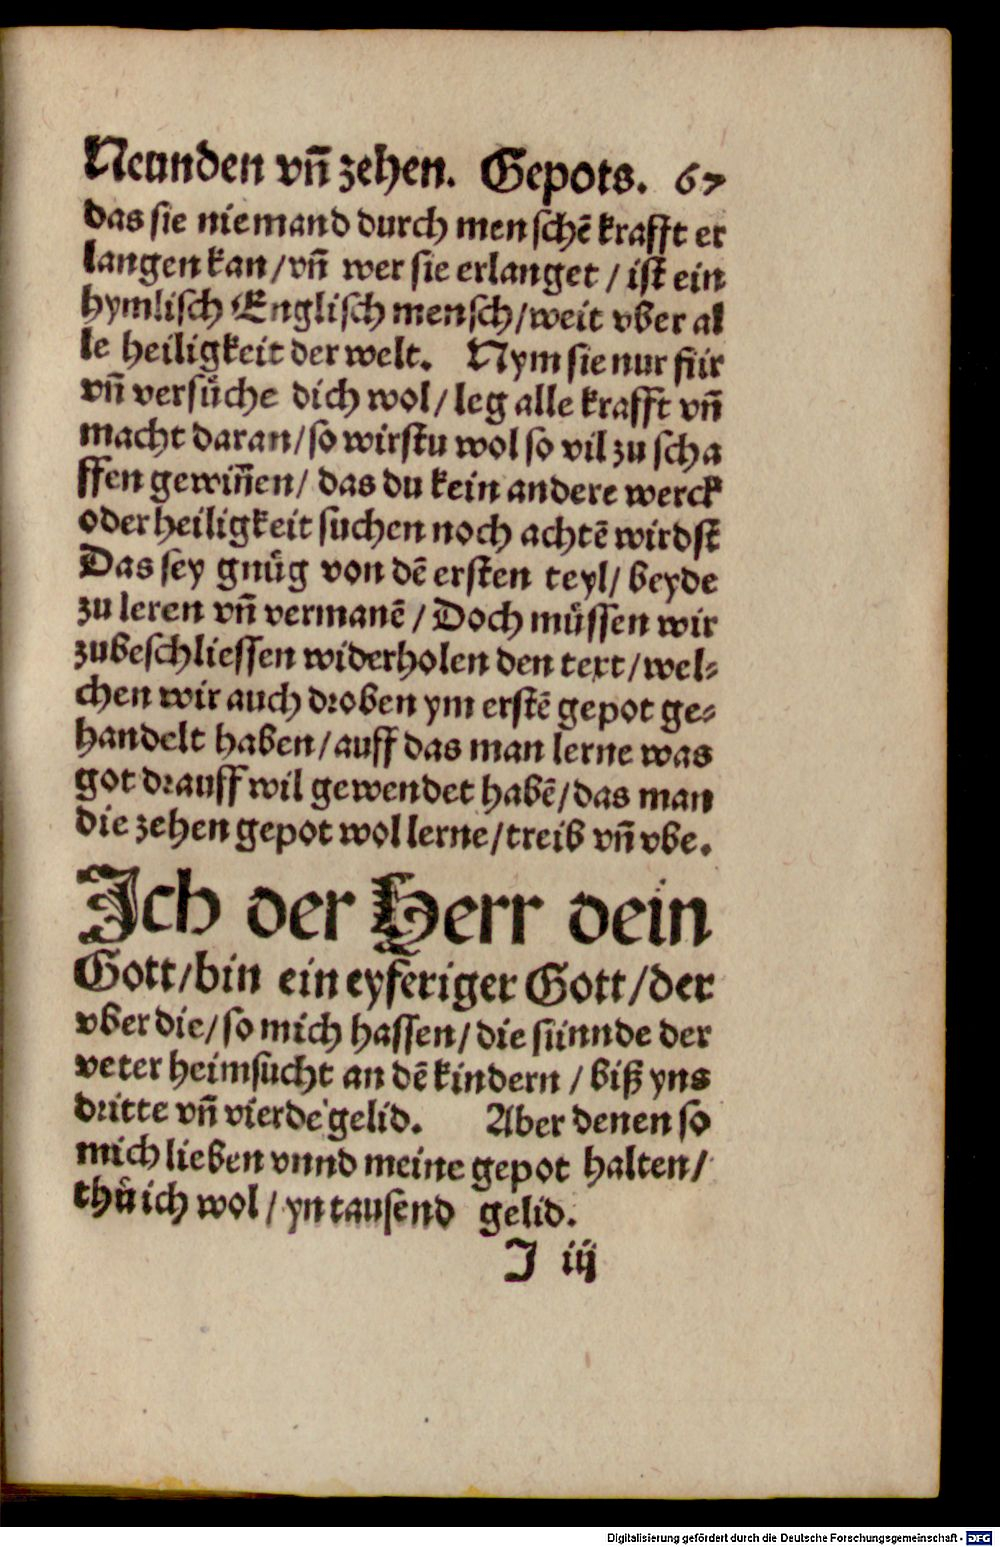 Neunden vñ zehen. Gepots. 67
das sie niemand durch menschẽ krafft er
langen kan/vñ wer sie erlanget / ist ein
hymlisch Englisch mensch/weit vber al
le heiligkeit der welt. Nym sie nur für
vñ versuͤche dich wol/ leg alle krafft vñ
macht daran/so wirstu wol so vil zu scha
ffen gewiñen/ das du kein andere werck
oder heiligkeit suchen noch achtẽ wirdst
Das sey gnuͤg von dẽ ersten teyl/ beyde
zu leren vñ vermanẽ / Doch muͤssen wir
zubeschliessen widerholen den text/wel⸗
chen wir auch droben ym erstẽ gepot ge⸗
handelt haben/auff das man lerne was
got drauff wil gewendet habẽ/das man
die zehen gepot wol lerne/treib vñ vbe.
Ich der Herr dein
Gott/bin ein eyferiger Gott/der
vber die/so mich hassen/die sünnde der
veter heimsucht an dẽ kindern / biß yns
dritte vñ vierde gelid. Aber denen so
mich lieben vnnd meine gepot halten/
thuͤ ich wol / yn tausend gelid.
J iij
Digitalisierung gefördert durch die Deutsche Forschungsgemeinschaft - DFG